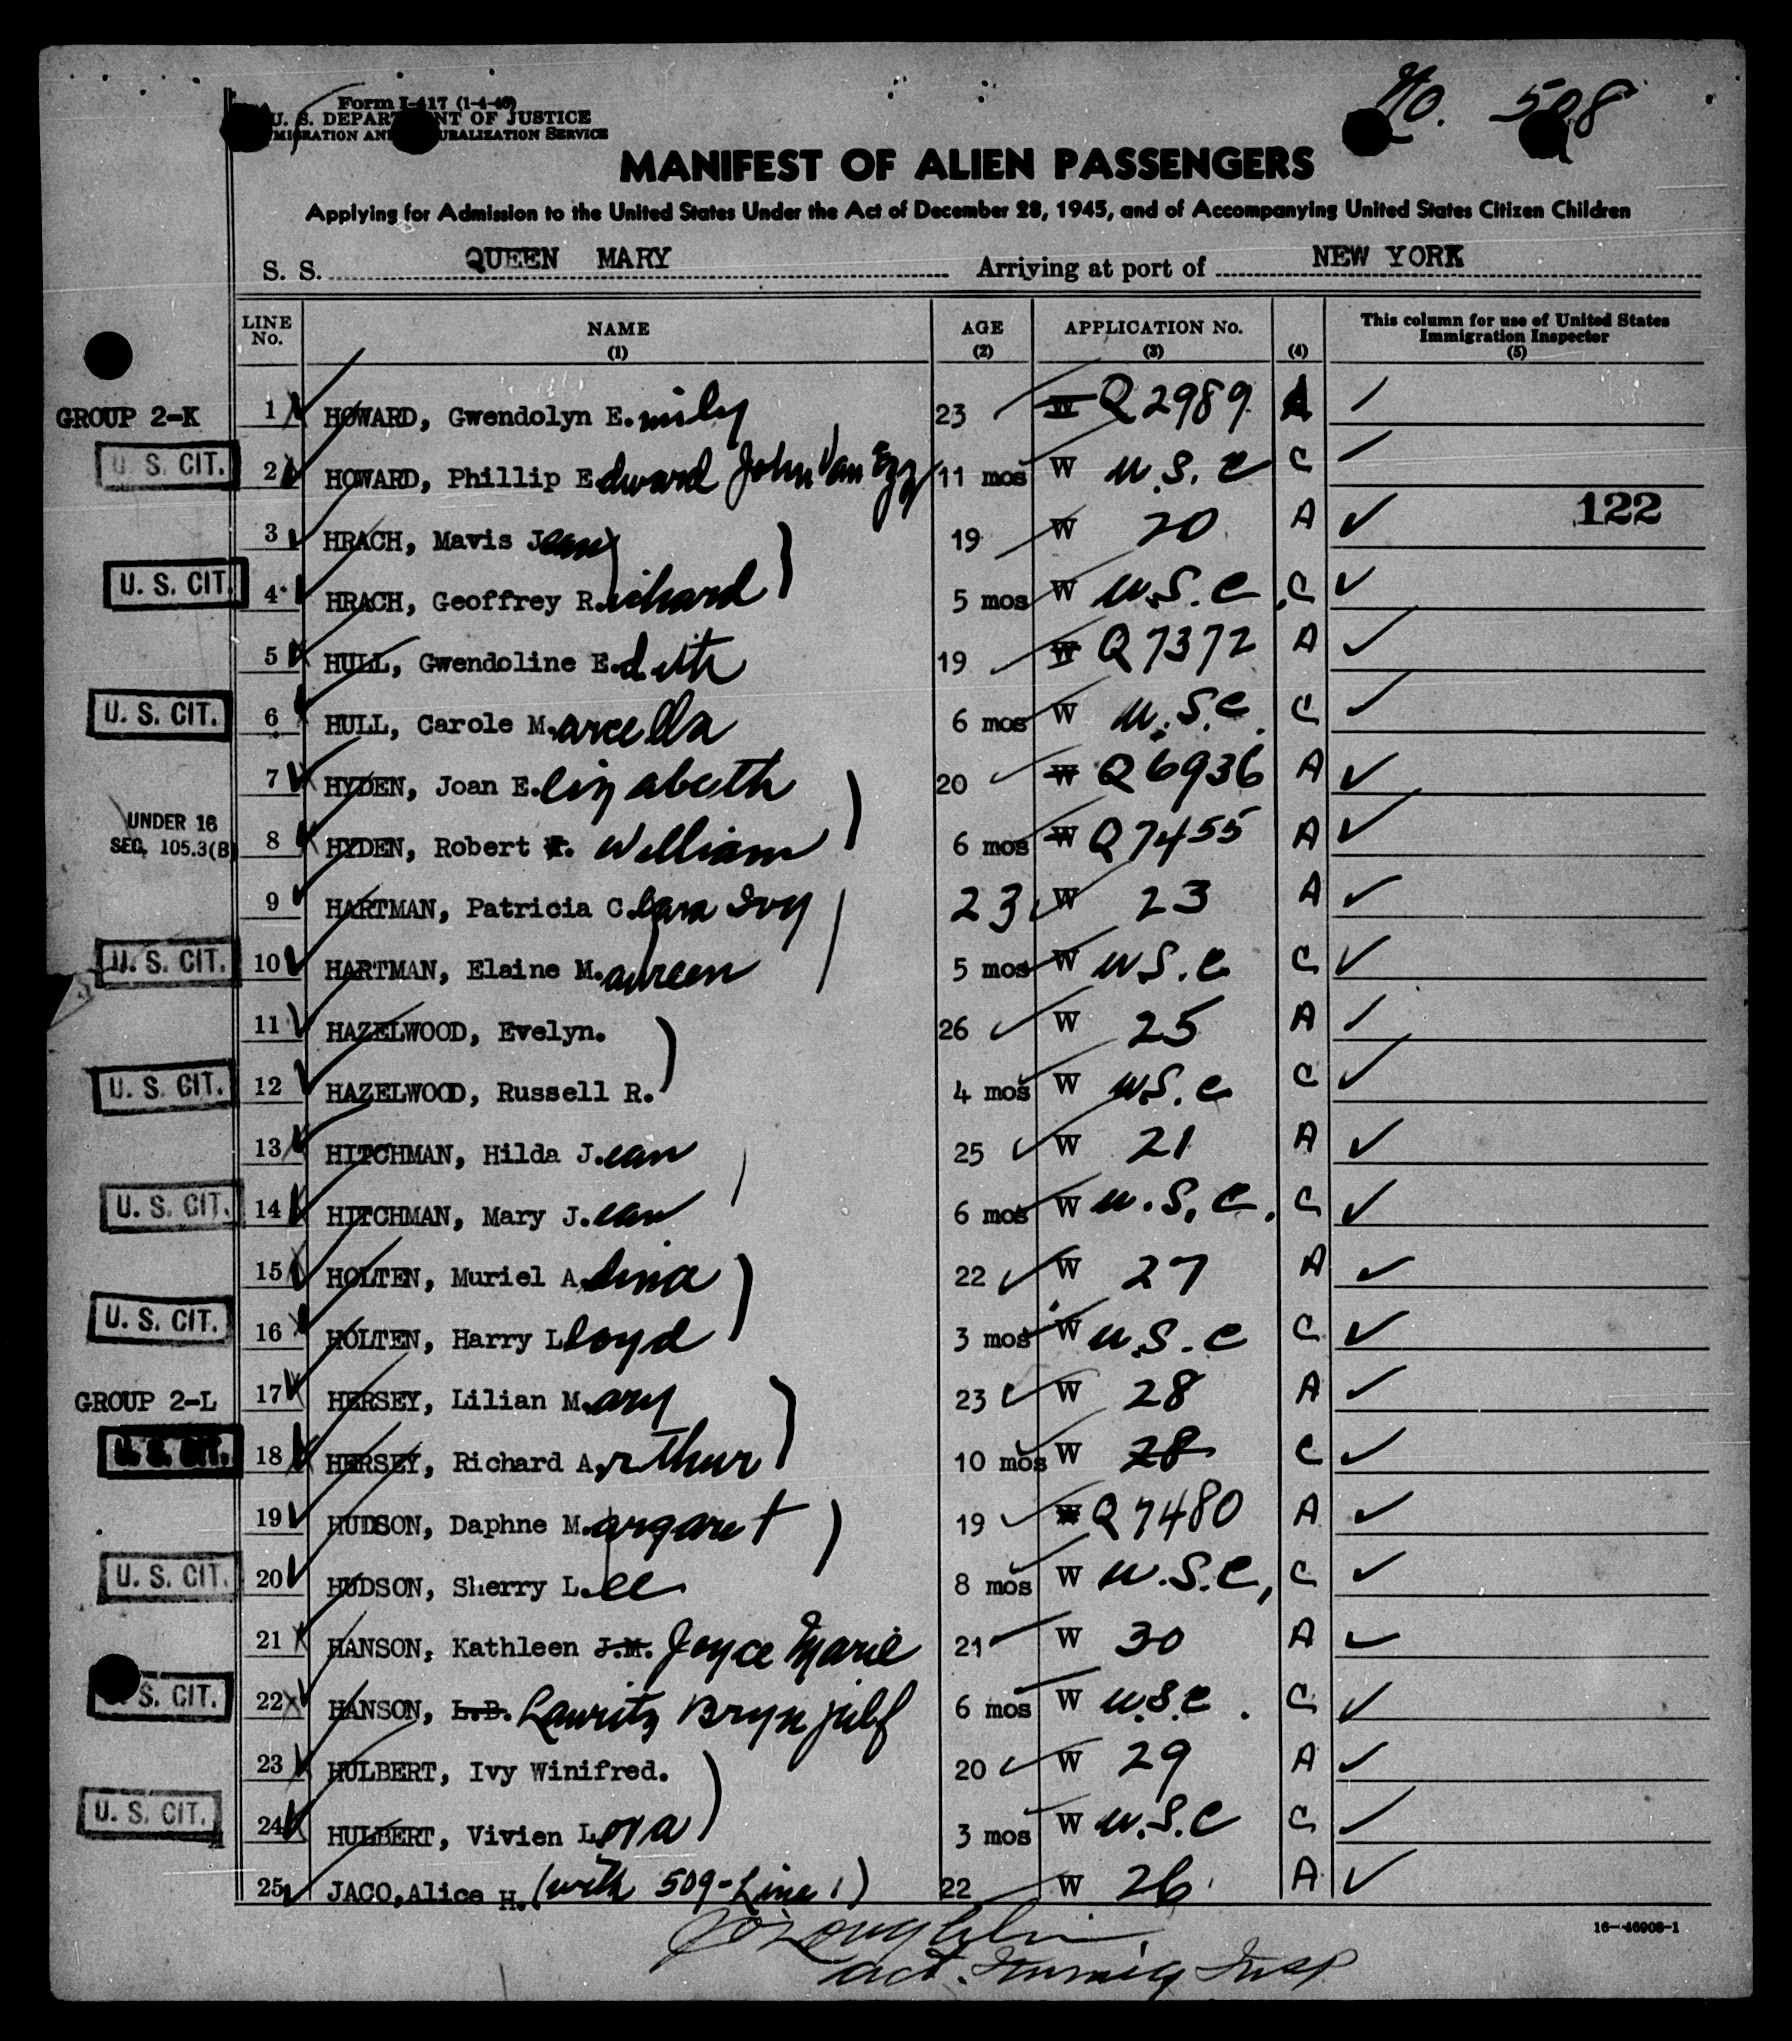 No. 508
Form I-417 (1-4-46)
U. S. DEPARTMENT OF JUSTICE
IMMIGRATION AND NATURALIZATION SERVICE
MANIFEST OF ALIEN PASSENGERS
Applying for Admission to the United States Under the Act of December 28, 1945, and of Accompanying United States Citizen Children
S. S. QUEEN MARY Arriving at port of NEW YORK
LINE No. NAME (1) AGE (2) APPLICATION No. (3) (4) This column for use of United States Immigration Inspector (5)
GROUP 2-K 1 HOWARD, Gwendolyn E.mily 23 W Q 2989 A
U. S. CIT. 2 HOWARD, Phillip Edward John Van 11 mos W U.S.C C
122
3 HRACH, Mavis Jean 19 W 20 A
U. S. CIT. 4 HRACH, Geoffrey R.ichard 5 mos W U.S.C. C
5 HULL, Gwendoline E.dith 19 W Q 7372 A
U. S. CIT. 6 HULL, Carole M.arcella 6 mos W U.S.C. C
7 HYDEN, Joan E.lizabeth 20 W Q 6936 A
UNDER 16 SEC. 105.3(B) 8 HYDEN, Robert William 6 mos W Q 7455 A
9 HARTMAN, Patricia C.lara Ivy 23 W 23 A
U. S. CIT. 10 HARTMAN, Elaine M.aureen 5 mos W U.S.C C
11 HAZELWOOD, Evelyn. 26 W 25 A
U. S. CIT. 12 HAZELWOOD, Russell R. 4 mos W U.S.C C
13 HITCHMAN, Hilda J.ean 25 W 21 A
U. S. CIT. 14 HITCHMAN, Mary J.ean 6 mos W U.S.C. C
15 HOLTEN, Muriel A 22 W 27 A
U. S. CIT. 16 HOLTEN, Harry Lloyd 3 mos W U.S.C C
GROUP 2-L 17 HERSEY, Lilian M.ary 23 W 28 A
U. S. CIT. 18 HERSEY, Richard A.rthur 10 mos W 28 C
19 HUDSON, Daphne M.argaret 19 W Q 7480 A
U. S. CIT. 20 HUDSON, Sherry L.ee 8 mos W U.S.C. C
21 HANSON, Kathleen J.M. Joyce Marie 21 W 30 A
U. S. CIT. 22 HANSON, L.B. Lauritz 6 mos W U.S.C. C
23 HULBERT, Ivy Winifred. 20 W 29 A
U. S. CIT. 24 HULBERT, Vivien L.ora 3 mos W U.S.C C
25 JACO, Alice H. (with 509-Line 1) 22 W 26 A
16-46908-1
act. Immig Insp